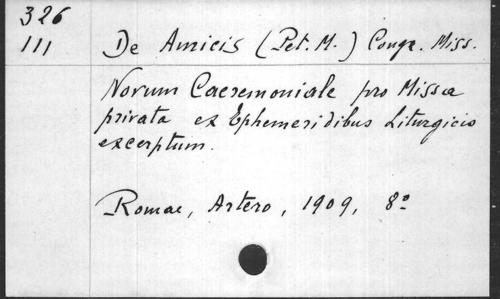 326
111 De Amicis (Pet. M.) Congr. Miss.
Novum Caeremoniale pro Missa
privata ex Ephemeridibus Liturgicis
excerptum.
Romae, Artero, 1909, 8º